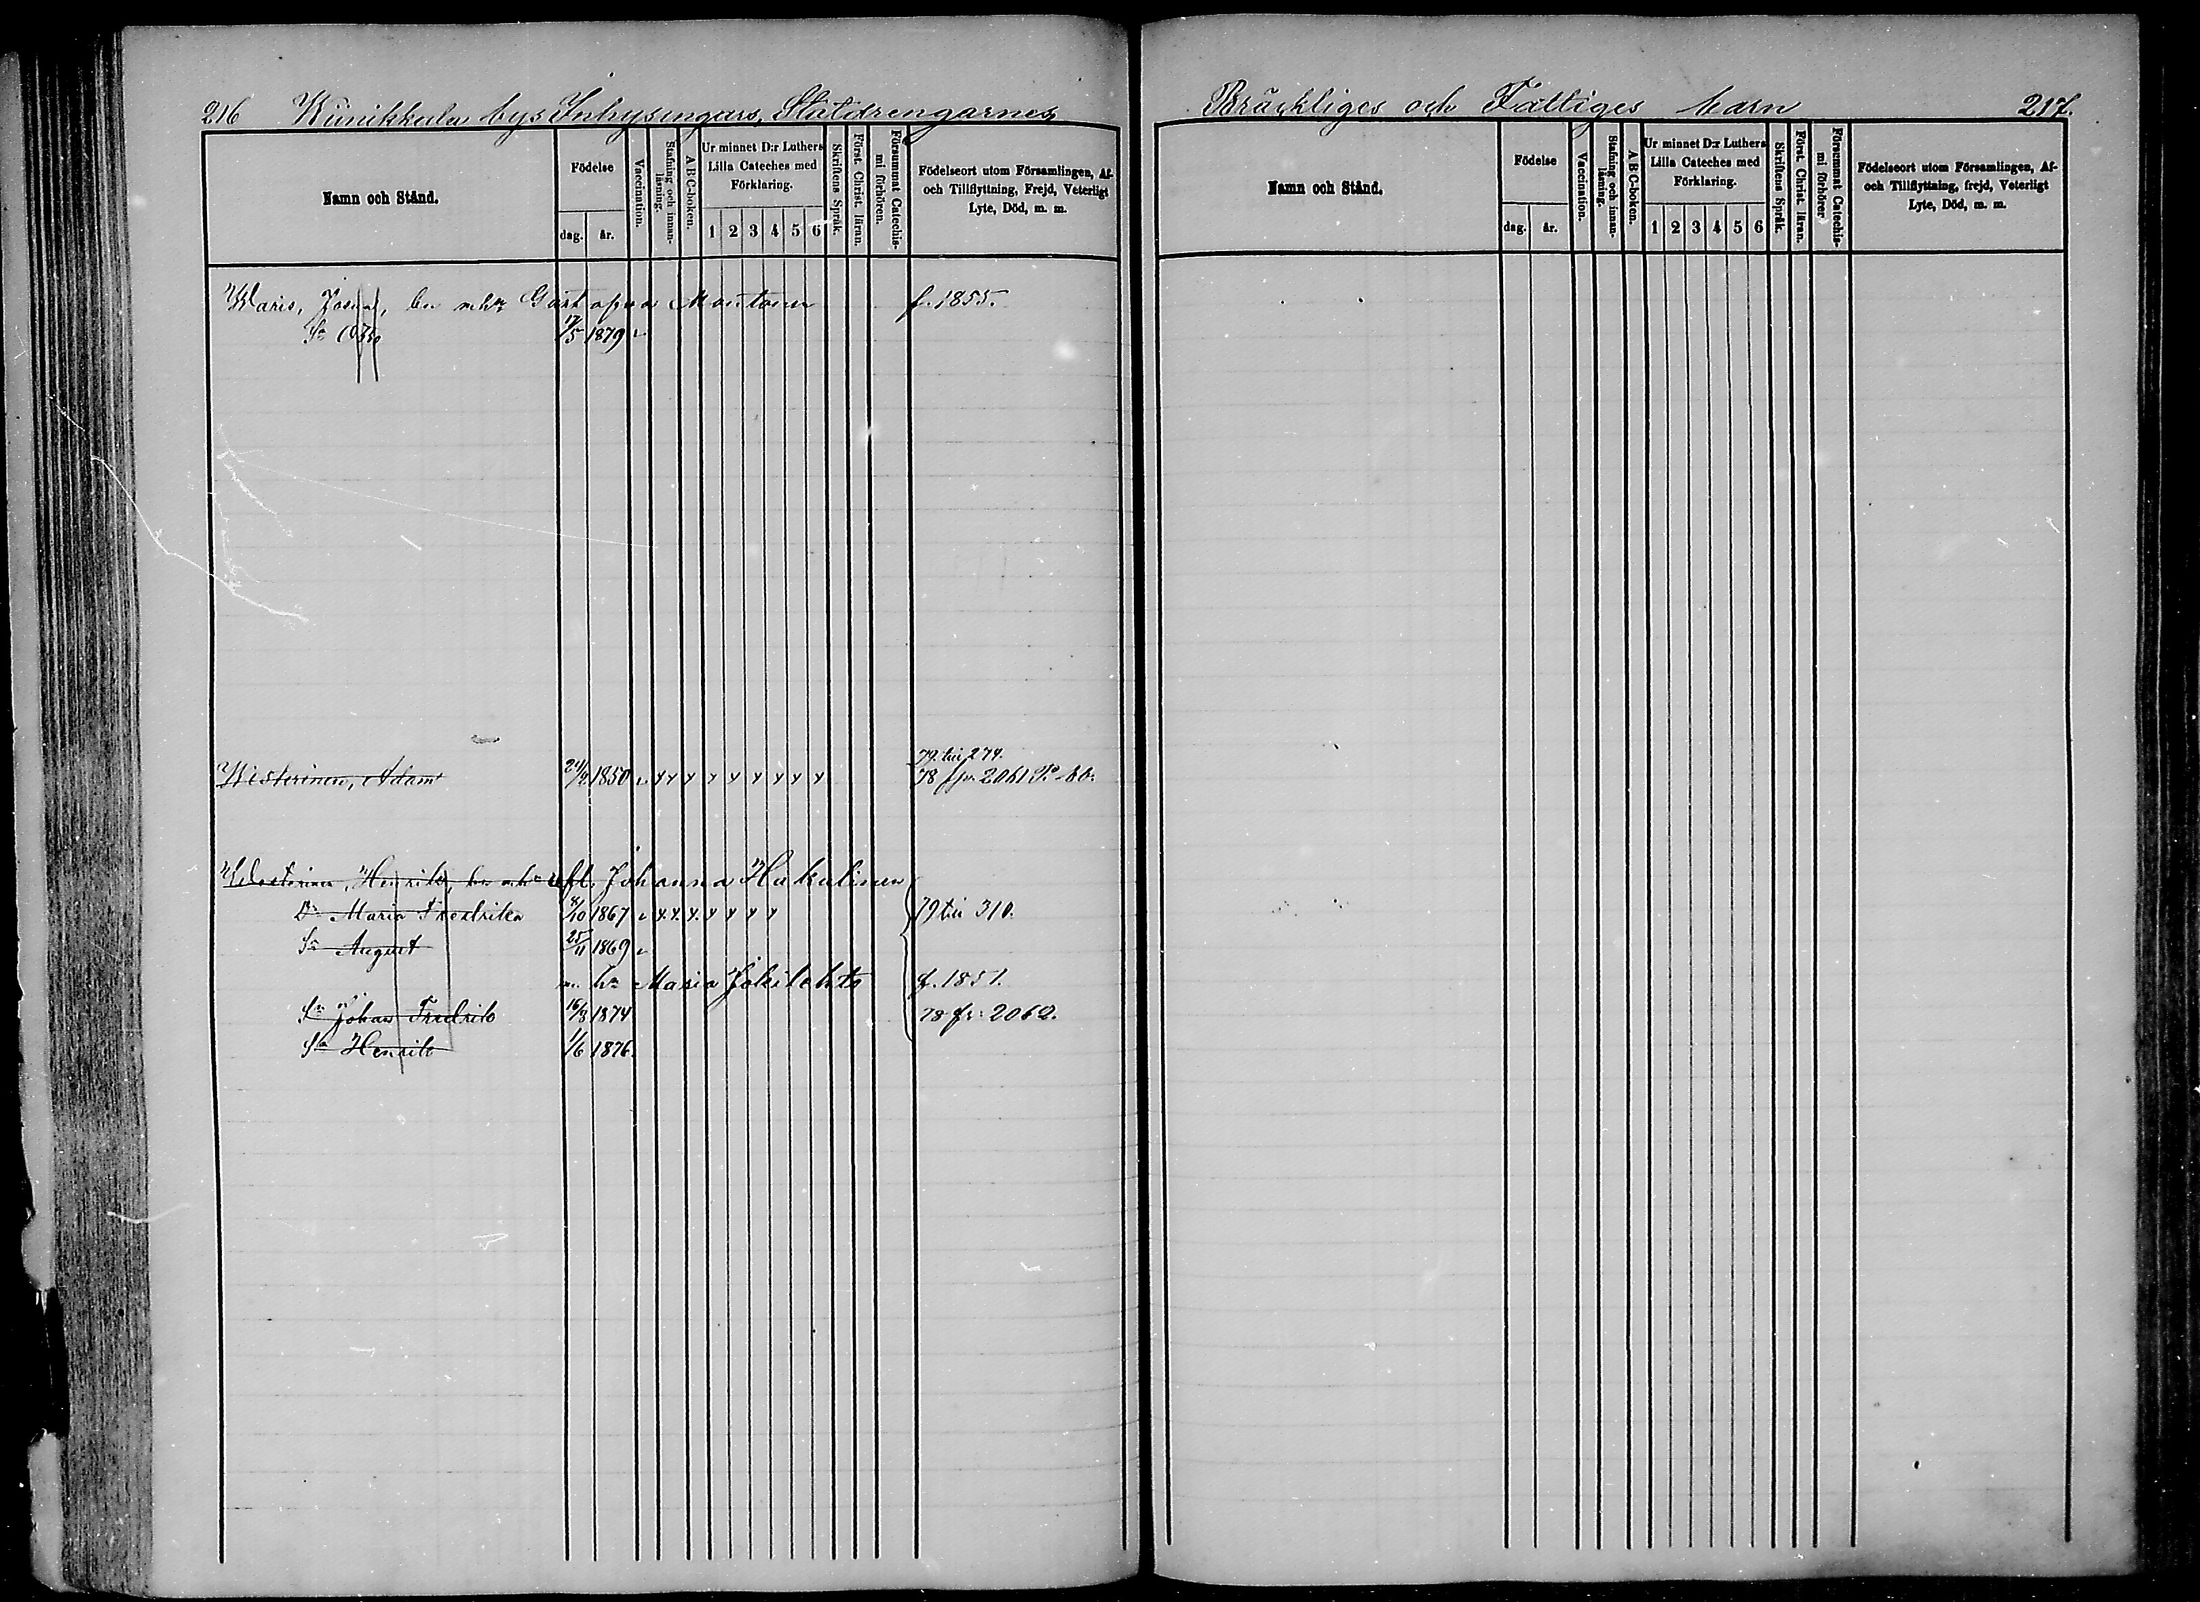 216 Wiinikkala bys Inhysingars, Statdrengarnes
Namn och Stånd.
Födelse
dag.
år.
Vaccination.
Stafning och innanläsning.
A B C-boken.
Ur minnet D:r Luthers Lilla Cateches med Förklaring.
1 2 3 4 5 6
Skriftens Språk.
Först. Christ. läran.
Försummat Catechismi förhören.
Födelseort utom Församlingen, Af- och Tillflyttning, Frejd, Veterligt Lyte, Död, m. m.
Waris, Josua, m. h:r f. 1855.
S:n Otto 17/5 1879 v
79 till 274.
Westerinen, Adam 24/2 1850 v y y y y y y y y y 78 fr. 2061
Westerinen, Henrik, Johanna Hakulinen
D:r Maria Fredrika 8/10 1867 v y. y. y. y y y y 79 till 310.
S:n August 25/11 1869 v
m. h:n Maria Jokilehto f. 1851.
S:n Johan Fredrik 16/8 1874 78 fr. 2062.
S:n Henrik 1/6 1876.
Bräckliges och Fattiges barn 217.
Namn och Stånd.
Födelse
dag.
år.
Vaccination.
Stafning och innanläsning.
A B C-boken.
Ur minnet D:r Luthers Lilla Cateches med Förklaring.
1 2 3 4 5 6
Skriftens Språk.
Först. Christ. läran.
Försummat Catechismi förhörer
Födelseort utom Församlingen, Af- och Tillflyttning, frejd, Veterligt Lyte, Död, m. m.